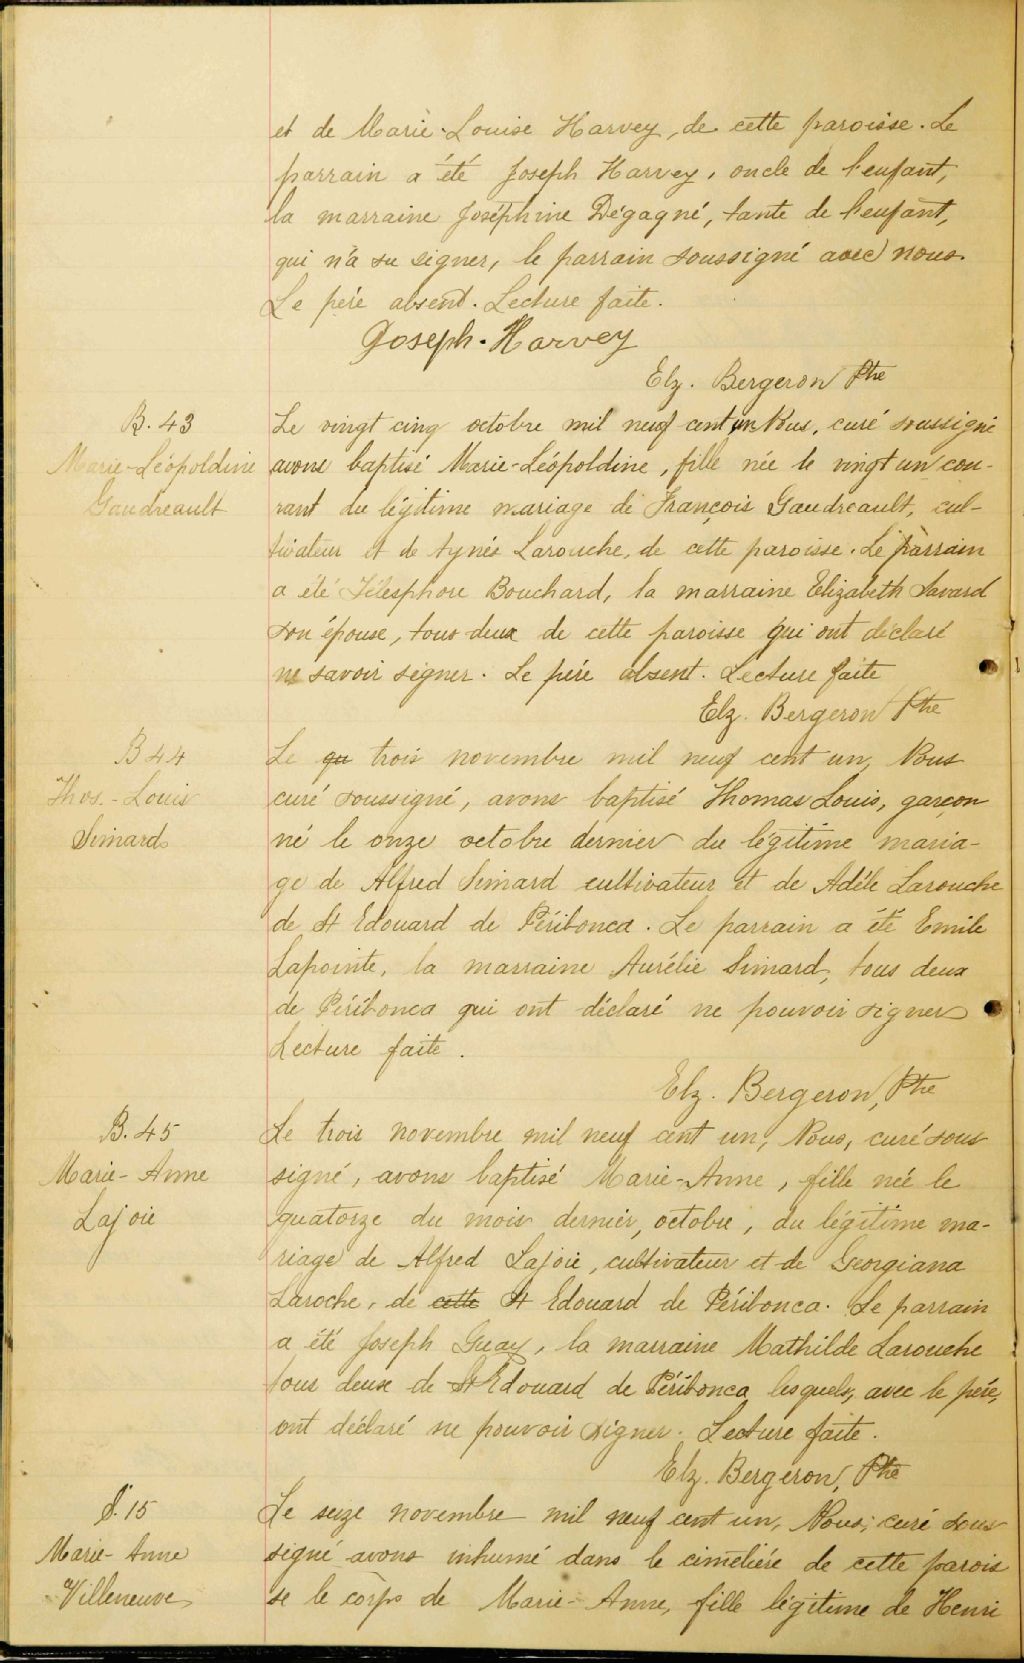 et de Marie-Louise Harvey, de cette paroisse. Le
parrain a été Joseph Harvey, oncle de l'enfant,
la marraine Joséphine Dégagné, tante de l'enfant,
qui n'a su signer, le parrain soussigné avec nous.
Le père absent. Lecture faite.
Joseph. Harvey
Elz. Bergeron Ptre
B. 43
Marie-Léopoldine
Gaudreault
Le vingt cinq octobre mil neuf cent un Nous, curé soussigné
avons baptisé Marie-Léopoldine, fille née le vingt un cou-
rant du légitime mariage de François Gaudreault, cul-
tivateur et de Larouche, de cette paroisse. Le parrain
a été Télesphore Bouchard, la marraine Elizabeth Savard
son épouse, tous deux de cette paroisse qui ont déclaré
ne savoir signer. Le père absent. Lecture faite
Elz. Bergeron Ptre
B 44
Thos.-Louis
Simard
Le qu trois novembre mil neuf cent un, Nous
curé soussigné, avons baptisé Thomas Louis, garçon
né le onze octobre dernier du légitime maria-
ge de Alfred Simard cultivateur et de Adèle Larouche
de St Edouard de Péribonca. Le parrain a été Emile
Lapointe, la marraine Aurélie Simard, tous deux
de Péribonca qui ont déclaré ne pouvoir signer
Lecture faite.
Elz. Bergeron, Ptre
B. 45
Marie-Anne
Lajoie
Le trois novembre mil neuf cent un, Nous, curé sous
signé, avons baptisé Marie-Anne, fille née le
quatorze du mois dernier, octobre, du légitime ma-
riage de Alfred Lajoie, cultivateur et de Georgiana
Laroche, de cette St Edouard de Péribonca. Le parrain
a été Joseph Guay, la marraine Mathilde Larouche
tous deux de St Edouard de Péribonca lesquels, avec le père,
ont déclaré ne pouvoir signer. Lecture faite.
Elz. Bergeron, Ptre
S. 15
Marie-Anne
Villeneuve
Le seize novembre mil neuf cent un, Nous, curé sous
signé avons inhumé dans le cimetière de cette parois
se le corps de Marie-Anne, fille légitime de Henri